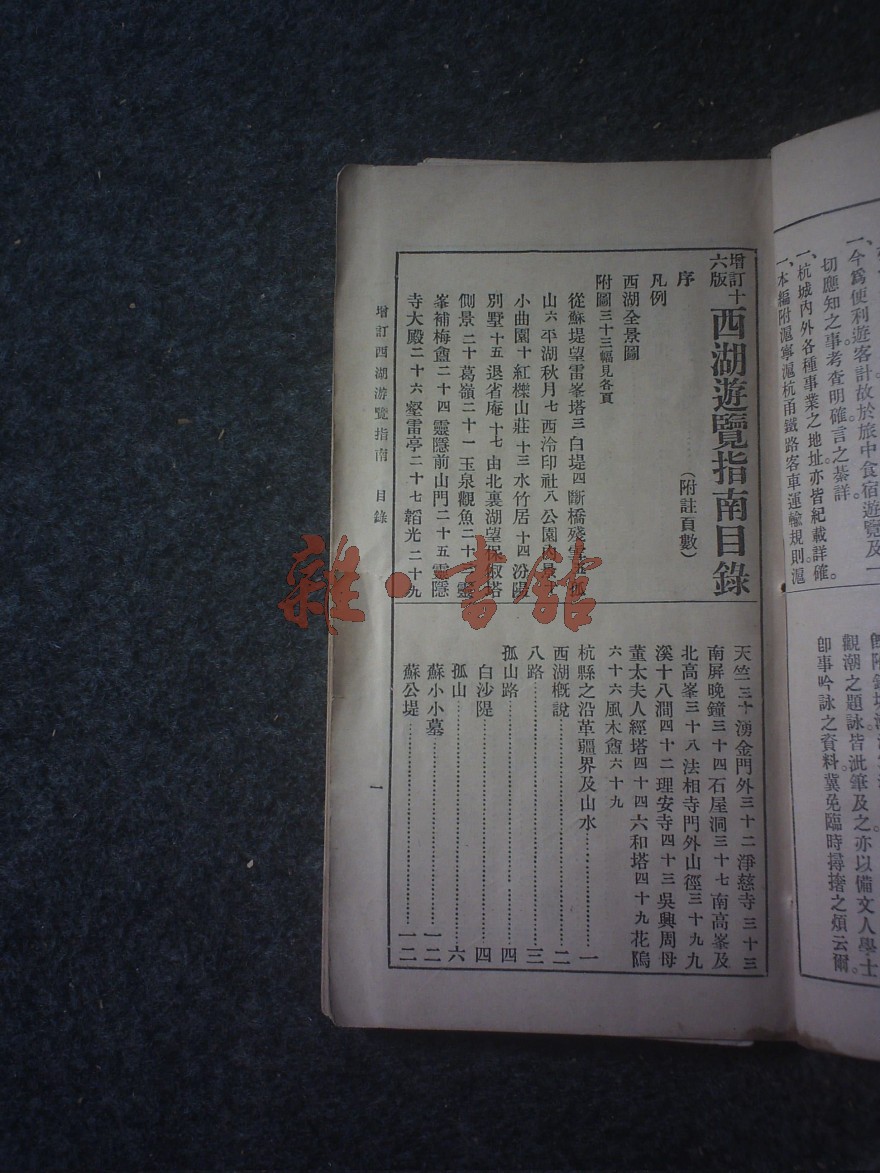 一、今爲便利遊客計故於旅中食宿遊覽及一
切應知之事考查明確言之綦詳
一、杭城內外各種事業之地址亦皆紀載詳確
一、本編附滬寧滬杭甬鐵路客車運輸規則滬
觀潮之題詠皆泚筆及之亦以備文人學士
卽事吟詠之資料冀免臨時尋撦之煩云爾。
增訂十六版 西湖遊覽指南目錄
(附註頁數)
序
凡例
西湖全景圖
附圖三十三幅見各頁
從蘇堤望雷峯塔三 白堤四 斷橋殘雪五 孤
山六 平湖秋月七 西泠印社八 公園內景
小曲園十 紅櫟山莊十三 水竹居十四 汾陽
別墅十五 退省庵十七 由北裏湖望保俶塔
側景二十 葛嶺二十一 玉泉觀魚二十三 靈
峯補梅盦二十四 靈隱前山門二十五 靈隱
寺大殿二十六 壑雷亭二十七 韜光二十九
天竺三十 湧金門外三十二 淨慈寺三十三
南屏晚鐘三十四 石屋洞三十七 南高峯及
北高峯三十八 法相寺門外山徑三十九 九
溪十八澗四十二 理安寺四十三 吳興周母
董太夫人經塔四十四 六和塔四十九 花隖
六十六 風木盦六十九
杭縣之沿革疆界及山水……一
西湖槪說……二
八路……三
孤山路……四
白沙隄……四
孤山……六
蘇小小墓……一二
蘇公堤……一二
增訂西湖游覽指南 目錄
一
雜·書館